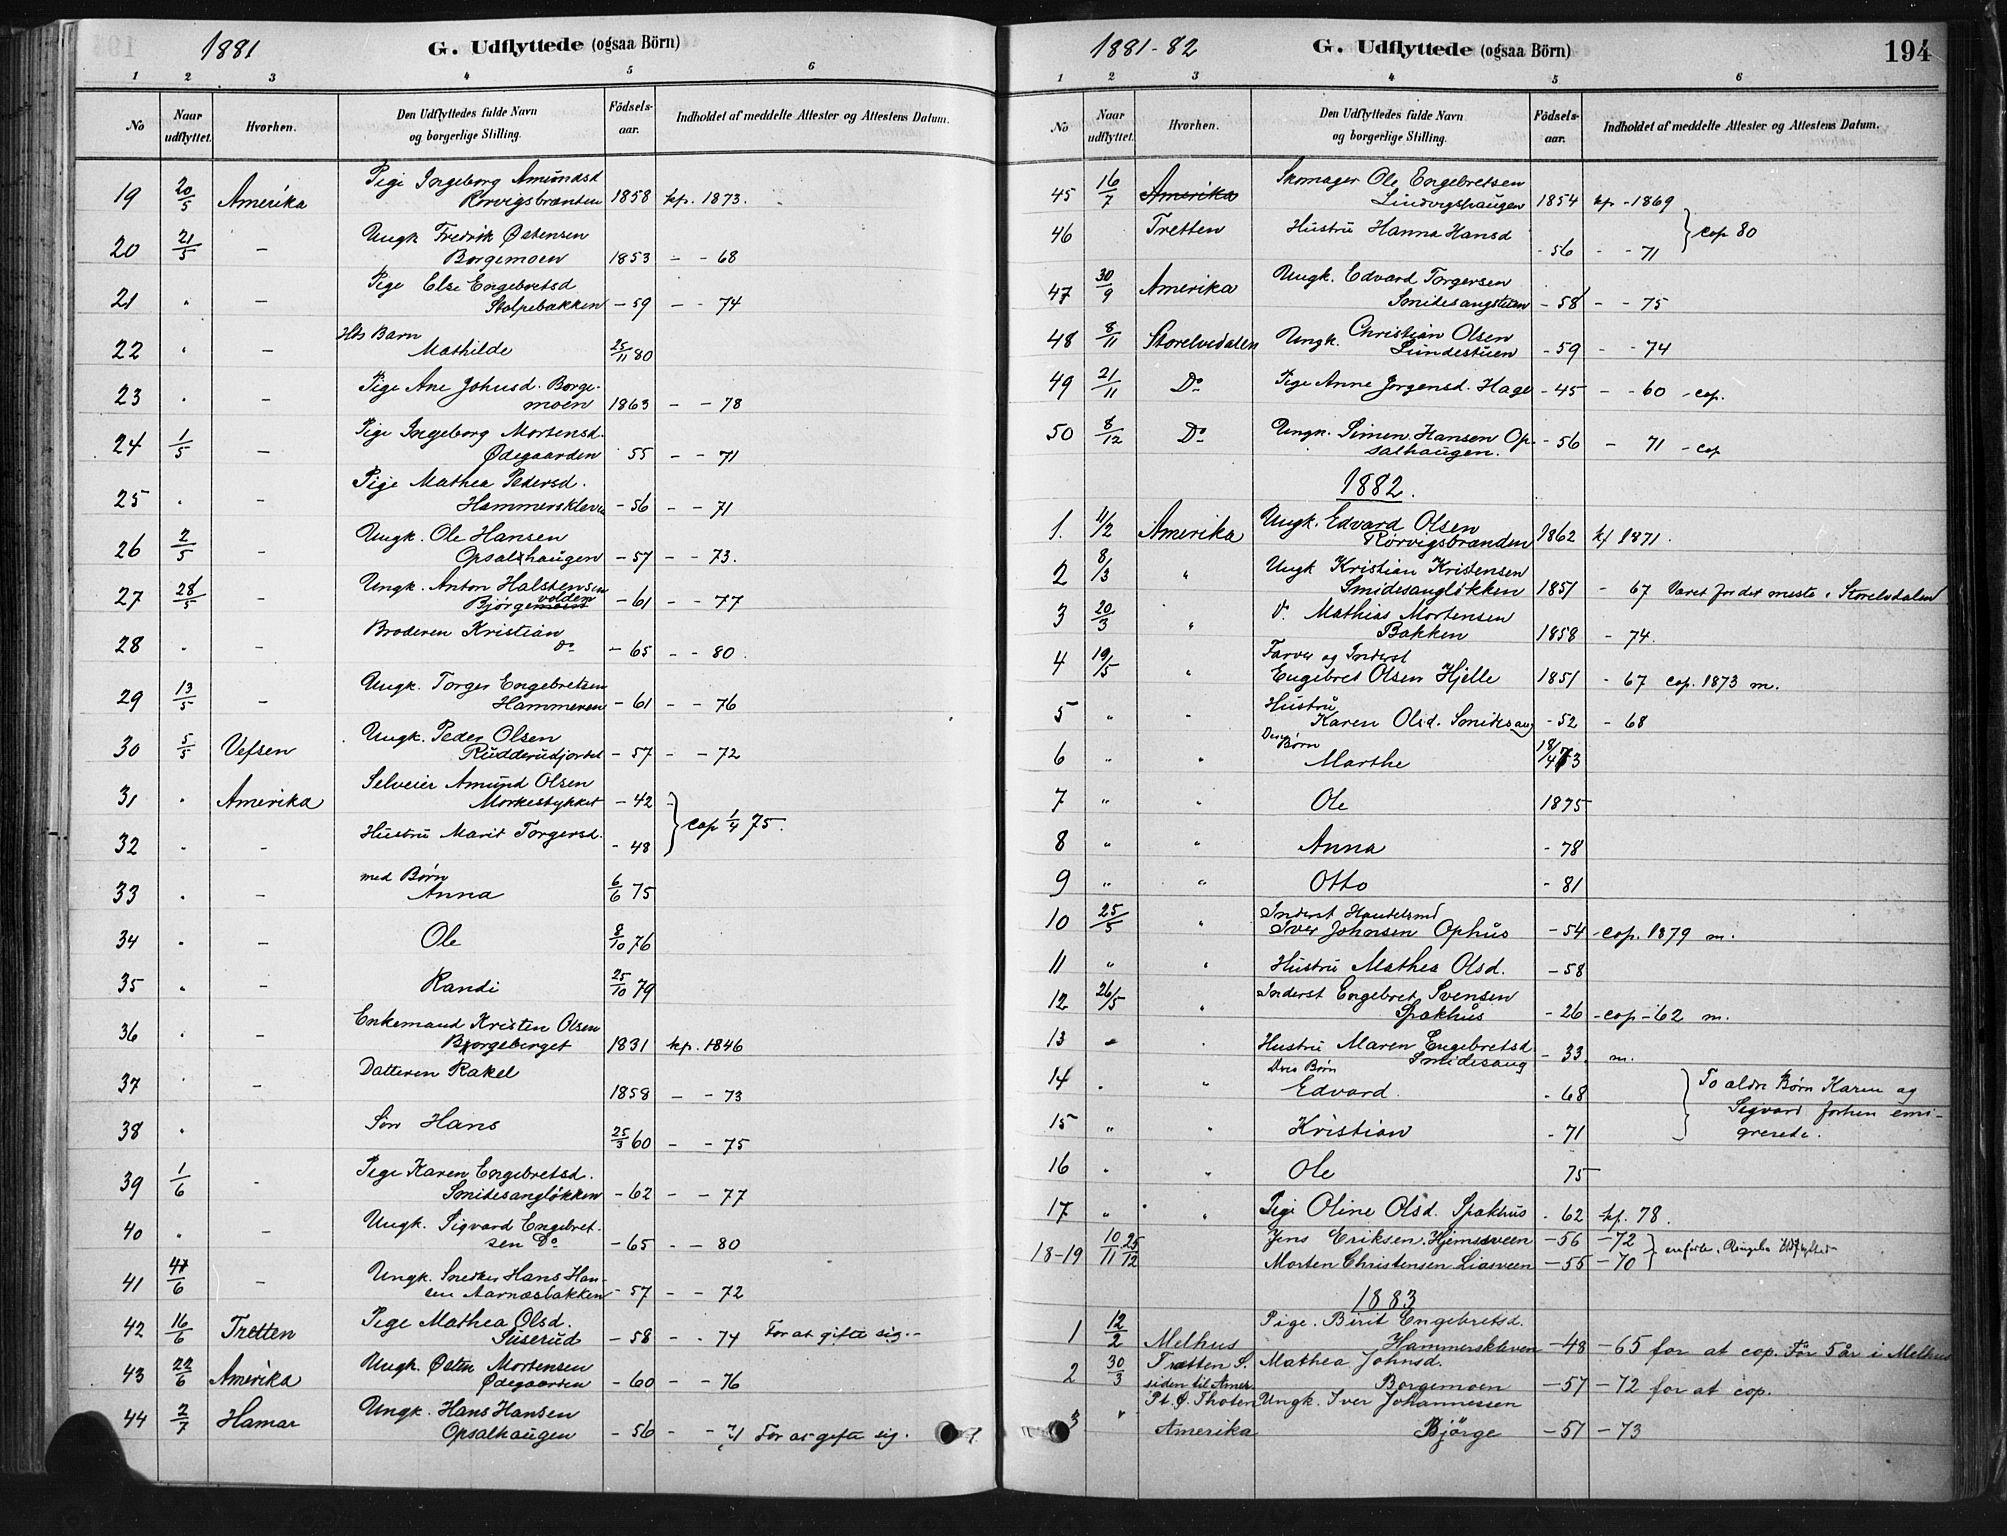 1881
G. Udflyttede (ogsaa Börn)
1 2 3 4 5 6
No
Naar udflyttet.
Hvorhen.
Den Udflyttedes fulde Navn og borgerlige Stilling.
Födsels-aar.
Indholdet af meddelte Attester og Attestens Datum.
19 20/5 Amerika Pige Ingeborg Amundsd
Rørvigsbrænden 1858 kp. 1873.
20 21/5 - Ungk Fredrik Østensen
Borgemoen 1853 - - 68
21 " - Pige Else Engebretsd
Stolpebakken - 59 - - 74
22 " - Hds Barn
Mathilde 25/11 80
23 " - Pige Ane Johnsd. Borge-
moen 1863 - - 78
24 1/5 - Pige Ingeborg Mortensd.
Ødegaarden 55 - - 71
25 " - Pige Mathea Pedersd.
Hammerskleven - 56 - - 71
26 2/5 - Ungk. Ole Hansen
Opsalhaugen - 57 - - 73.
27 28/5 - Ungk. Anton Halstensen
Bjørgevolden - 61 - - 77
28 " - Broderen Kristian
Do - 65 - - 80.
29 13/5 - Ungk. Torger Engebretsen
Hammeren - 61 - - 76
30 5/5 Vefsen Ungk. Peder Olsen
Rudderudjordet - 57 - - 72
31 " Amerika Selveier Amund Olsen
Morkestykket - 42
cop 1/4 75.
32 " - Hustru Marit Torgersd.
- 48
33 " - med Børn
Anna 6/6 75
34 " - Ole 8/10 76
35 " - Randi 25/10 79
36 " - Enkemand Kristen Olsen
Bjorgeberget 1831 kp. 1846
37 " - Datteren Rakel
1859 - - 73
38 " Søn Hans
25/3 60 - - 75
39 1/6 - Pige Karen Engebretsd.
Smidesangløkken - 62 - - 77
40 " - Ungk. Sigvard Engebret-
sen Do - 65 - - 80
41 /6 - Ungk. Snedker Hans Han-
sen Aarnæsbakken - 57 - - 72
42 16/6 Tretten Pige Mathea Olsd.
Siiserud - 58 - - 74 For at gifte sig.
43 22/6 Amerika Ungk. Østen Mortensen
Ødegaarden - 60 - - 76
44 2/7 Hamar Ungk. Hans Hansen
Opsalhaugen - 56 - - 71 For at gifte sig.
1881-82
G. Udflyttede (ogsaa Börn)
194
1 2 3 4 5 6
No
Naar udflyttet.
Hvorhen.
Den Udflyttedes fulde Navn og borgerlige Stilling.
Födsels-aar.
Indholdet af meddelte Attester og Attestens Datum.
45 16/7 Amerika Skomager Ole Engebretsen
Lindvigshaugen 1854 kp - 1869
46 Tretten Hustru Hanna Hansd
- 56 - - 71
cop 80
47 30/9 Amerika Ungk. Edvard Torgersen
- 58 - - 75
48 8/11 Storelvedalen Ungk. Christian Olsen
Lundestuen - 59 - - 74
49 21/11 Do Pige Anne Jorgensd. Hage - 45 - - 60 - cop.
50 8/12 Do Ungk. Simen Hansen Op-
salhaugen. - 56 - 71 - cop
1882.
1. 11/2 Amerika Ungk. Edvard Olsen
Rørvigsbrænden 1862 kf 1871.
2 8/3 " Ungk Kristian Kristensen
Smidesangløkken 1851 - 67 Været for det meste i Storelvdalen
3 20/3 " Do Mathias Mortensen
Bakken 1858 - 74.
4 19/5 " Farver og Inderst
Engebret Olsen Hjelle 1851 - 67 cop. 1873 m.
5 " " Hustru
Karen Olsd. Smidesang - 52 - 68
6 " " Deres Børn
Marthe 18/4 73
7 " " Ole 1875
8 " " Anna - 78
9 " " Otto - 81
10 25/5 " Inderst Handelsmd
Iver Johnsen Ophus - 54 - cop. 1879 m.
11 " " Hustru Mathea Olsd. - 58
12 26/5 " Inderst Engebret Svensen
Spakhus - 26 - cop - 62 m.
13 " " Hustru Maren Engebretsd.
Smidesang - 33. m.
14 " " Dres Børn
Edvard. - 68
To ældre Børn Karen og
Sigvard forhen emi-
grerede.
15 " " Kristian - 71
16 " " Ole 75
17 " " Pige Oline Olsd. Spakhus - 62 kf. 78.
18-19 10/11 25/12 Jens Eriksen Hjemsveen - 56 - 72
Morten Christensen Liosveen - 55 - 70
1883
1 12/2 Melhus Pige. Birit Engebretsd.
Hammerskleven - 48 - 65 for at cop. For 5 år i Melhus
2 30/3 Tretten S. Mathea Johnsd.
siden til Amer. Borgemoen - 57 - 72 for at cop.
3 " Pt. Ø. Thoten Ungk. Iver Johannessen
Amerika Bjørge - 57 - 73